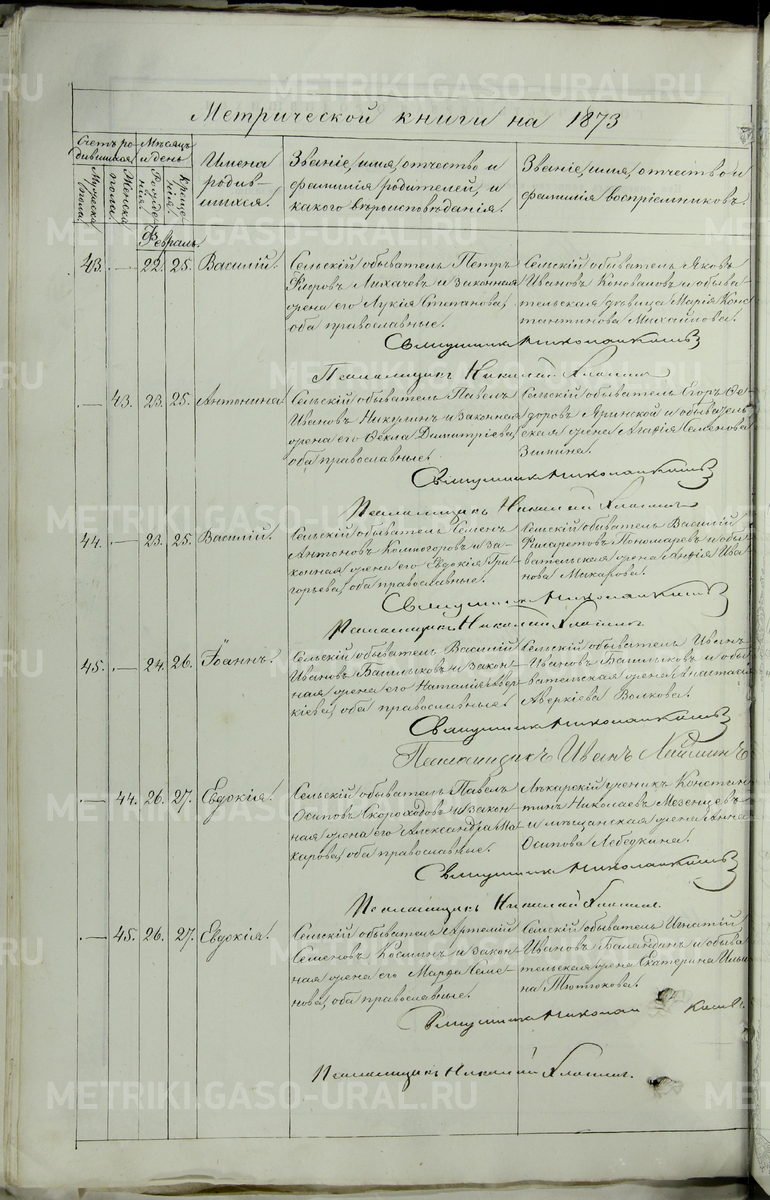 Метрической книги на 1873
Счетъ родившихся
Мѣсяцъ и день
Имена родившихся.
Званіе, имя, отчество и фамилія родителей, и какого вѣроисповѣданія.
Званіе, имя, отчество и фамилія воспріемниковъ.
Мужеска пола.
Женска пола.
Рожденія.
Крещенія.
Февраль.
43. — 22. 25. Василій.
Сельскій обыватель Петръ
Лихачевъ и законная
жена его Лукія Степановна,
оба православные.
Сельскій обыватель Яковъ
Ивановъ Коноваловъ и обыва-
тельская дѣвица Марія Конс-
тантинова Михайлова.
Священникъ Николай
Псаломщикъ Николай
— 43. 23. 25. Антонина.
Сельскій обыватель Павелъ
Ивановъ Никулинъ и законная
жена его Ѳекла Димитріева,
оба православные.
Сельскій обыватель Егоръ Ѳе-
доровъ Яринской и обыватель-
ская жена Агафія Семенова
Зимина.
Священникъ Николай
Псаломщикъ Николай
44. — 23. 25. Василій.
Сельскій обыватель Семенъ
Антоновъ Комогоровъ и за-
конная жена его Евдокія Гри-
горьева, оба православные.
Сельскій обыватель Василій
Филаретовъ Пономаревъ и обы-
вательская жена Ива-
нова Макарова.
Священникъ Николай
Псаломщикъ Николай
45. — 24. 26. Іоаннъ.
Сельскій обыватель Василій
Ивановъ Башлыковъ и закон-
ная жена его Наталія Авер-
кіева, оба православные.
Сельскій обыватель Иванъ
Ивановъ Башлыковъ и обы-
вательская жена Анастасія
Аверкіева Волкова.
Священникъ Николай
Псаломщикъ Иванъ
— 44. 26. 27. Евдокія.
Сельскій обыватель Павелъ
Осиповъ Скороходовъ и закон-
ная жена его Александра Ма-
карова, оба православные.
Лѣкарскій ученикъ Констан-
тинъ Николаевъ Мезенцевъ
и мѣщанская жена Анна
Осипова Лебедкина.
Священникъ Николай
Псаломщикъ Николай
— 45. 26. 27. Евдокія.
Сельскій обыватель Артемій
Семеновъ Косминъ и закон-
ная жена его Марфа Семе-
нова, оба православные.
Сельскій обыватель Игнатій
Ивановъ и обыва-
тельская жена Екатерина Ильи-
на Тютюкова.
Священникъ Николай
Псаломщикъ Николай
METRIKI.GASO-URAL.RU